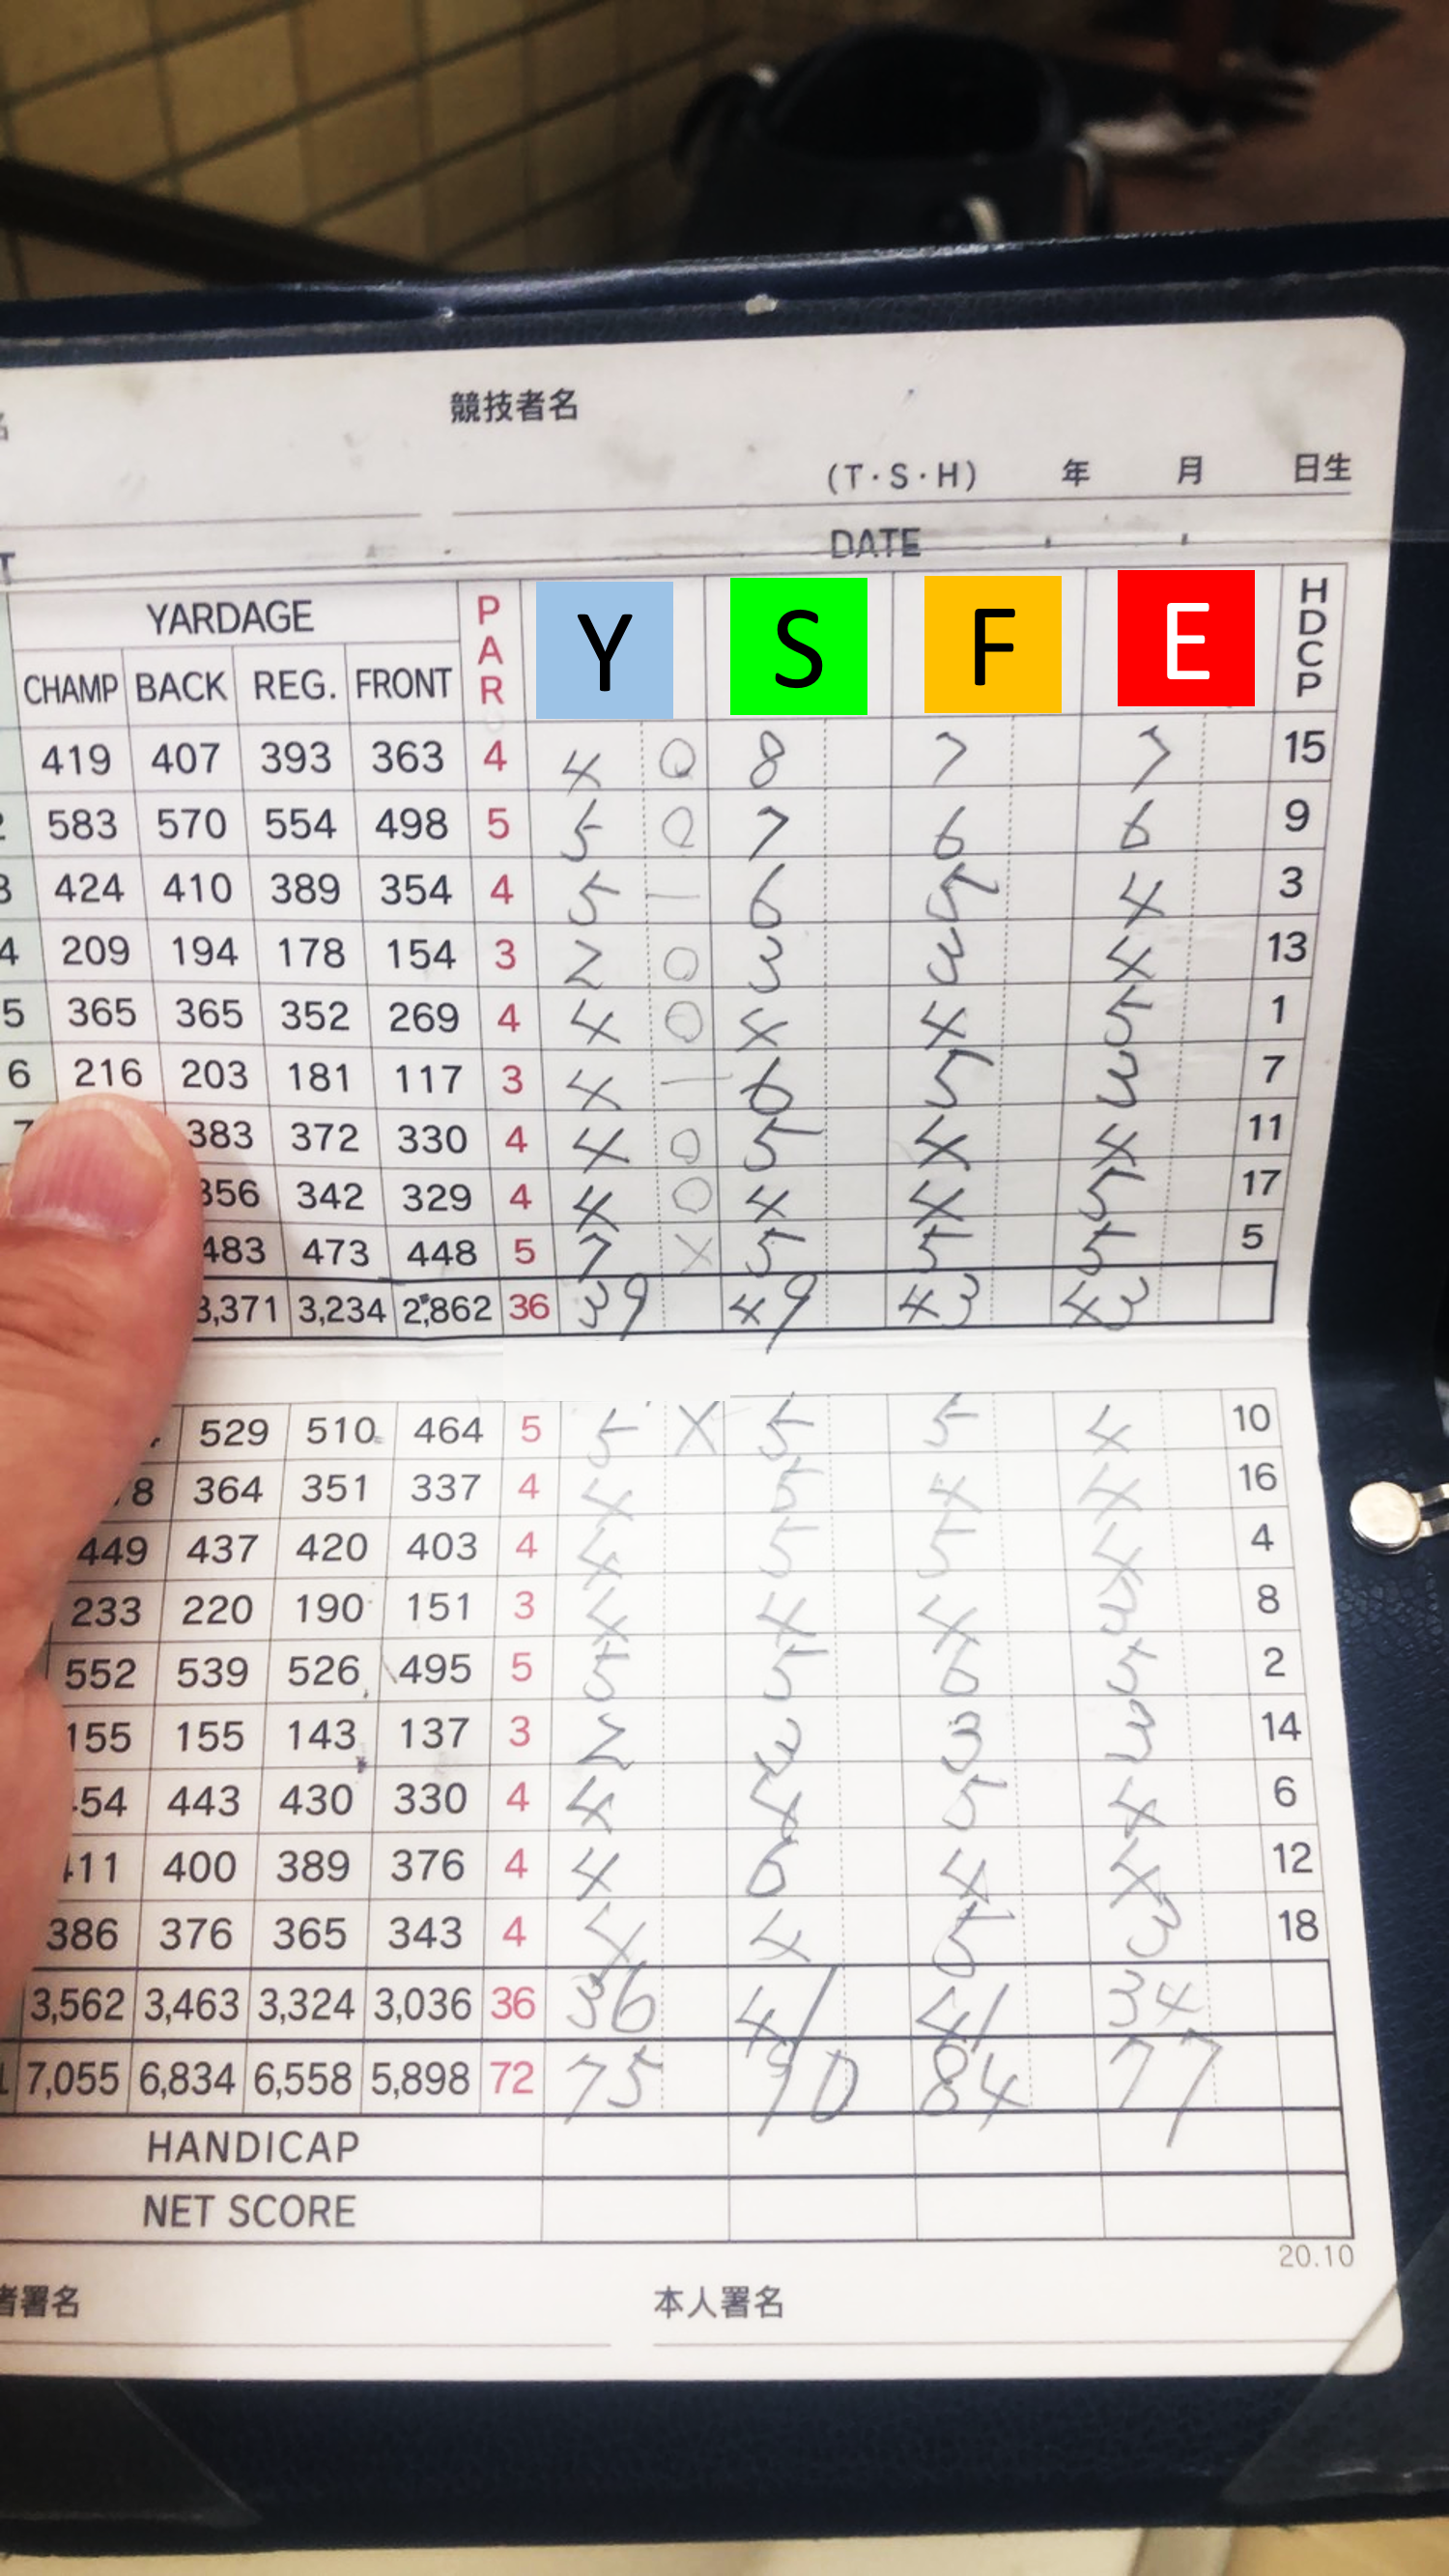 競技者名
(T・S・H) 年 月 日生
DATE
YARDAGE PAR Y S F E HDCP
CHAMP BACK REG. FRONT
419 407 393 363 4 4 0 8 7 7 15
583 570 554 498 5 5 0 7 6 6 9
3 424 410 389 354 4 5 — 6 5 4 3
4 209 194 178 154 3 2 0 3 3 4 13
5 365 365 352 269 4 4 0 4 4 5 1
6 216 203 181 117 3 4 — 6 5 3 7
383 372 330 4 4 0 5 4 4 11
356 342 329 4 4 0 4 4 5 17
483 473 448 5 7 X 5 5 5 5
3,371 3,234 2,862 36 39 49 43 43
529 510 464 5 5 X 5 5 4 10
8 364 351 337 4 4 5 4 4 16
449 437 420 403 4 4 5 5 4 4
233 220 190 151 3 4 4 4 3 8
552 539 526 495 5 5 5 6 5 2
155 155 143 137 3 2 3 3 3 14
454 443 430 330 4 4 4 5 4 6
411 400 389 376 4 4 6 4 4 12
386 376 365 343 4 4 4 5 3 18
3,562 3,463 3,324 3,036 36 36 41 41 34
7,055 6,834 6,558 5,898 72 75 90 84 77
HANDICAP
NET SCORE
20.10
者署名 本人署名